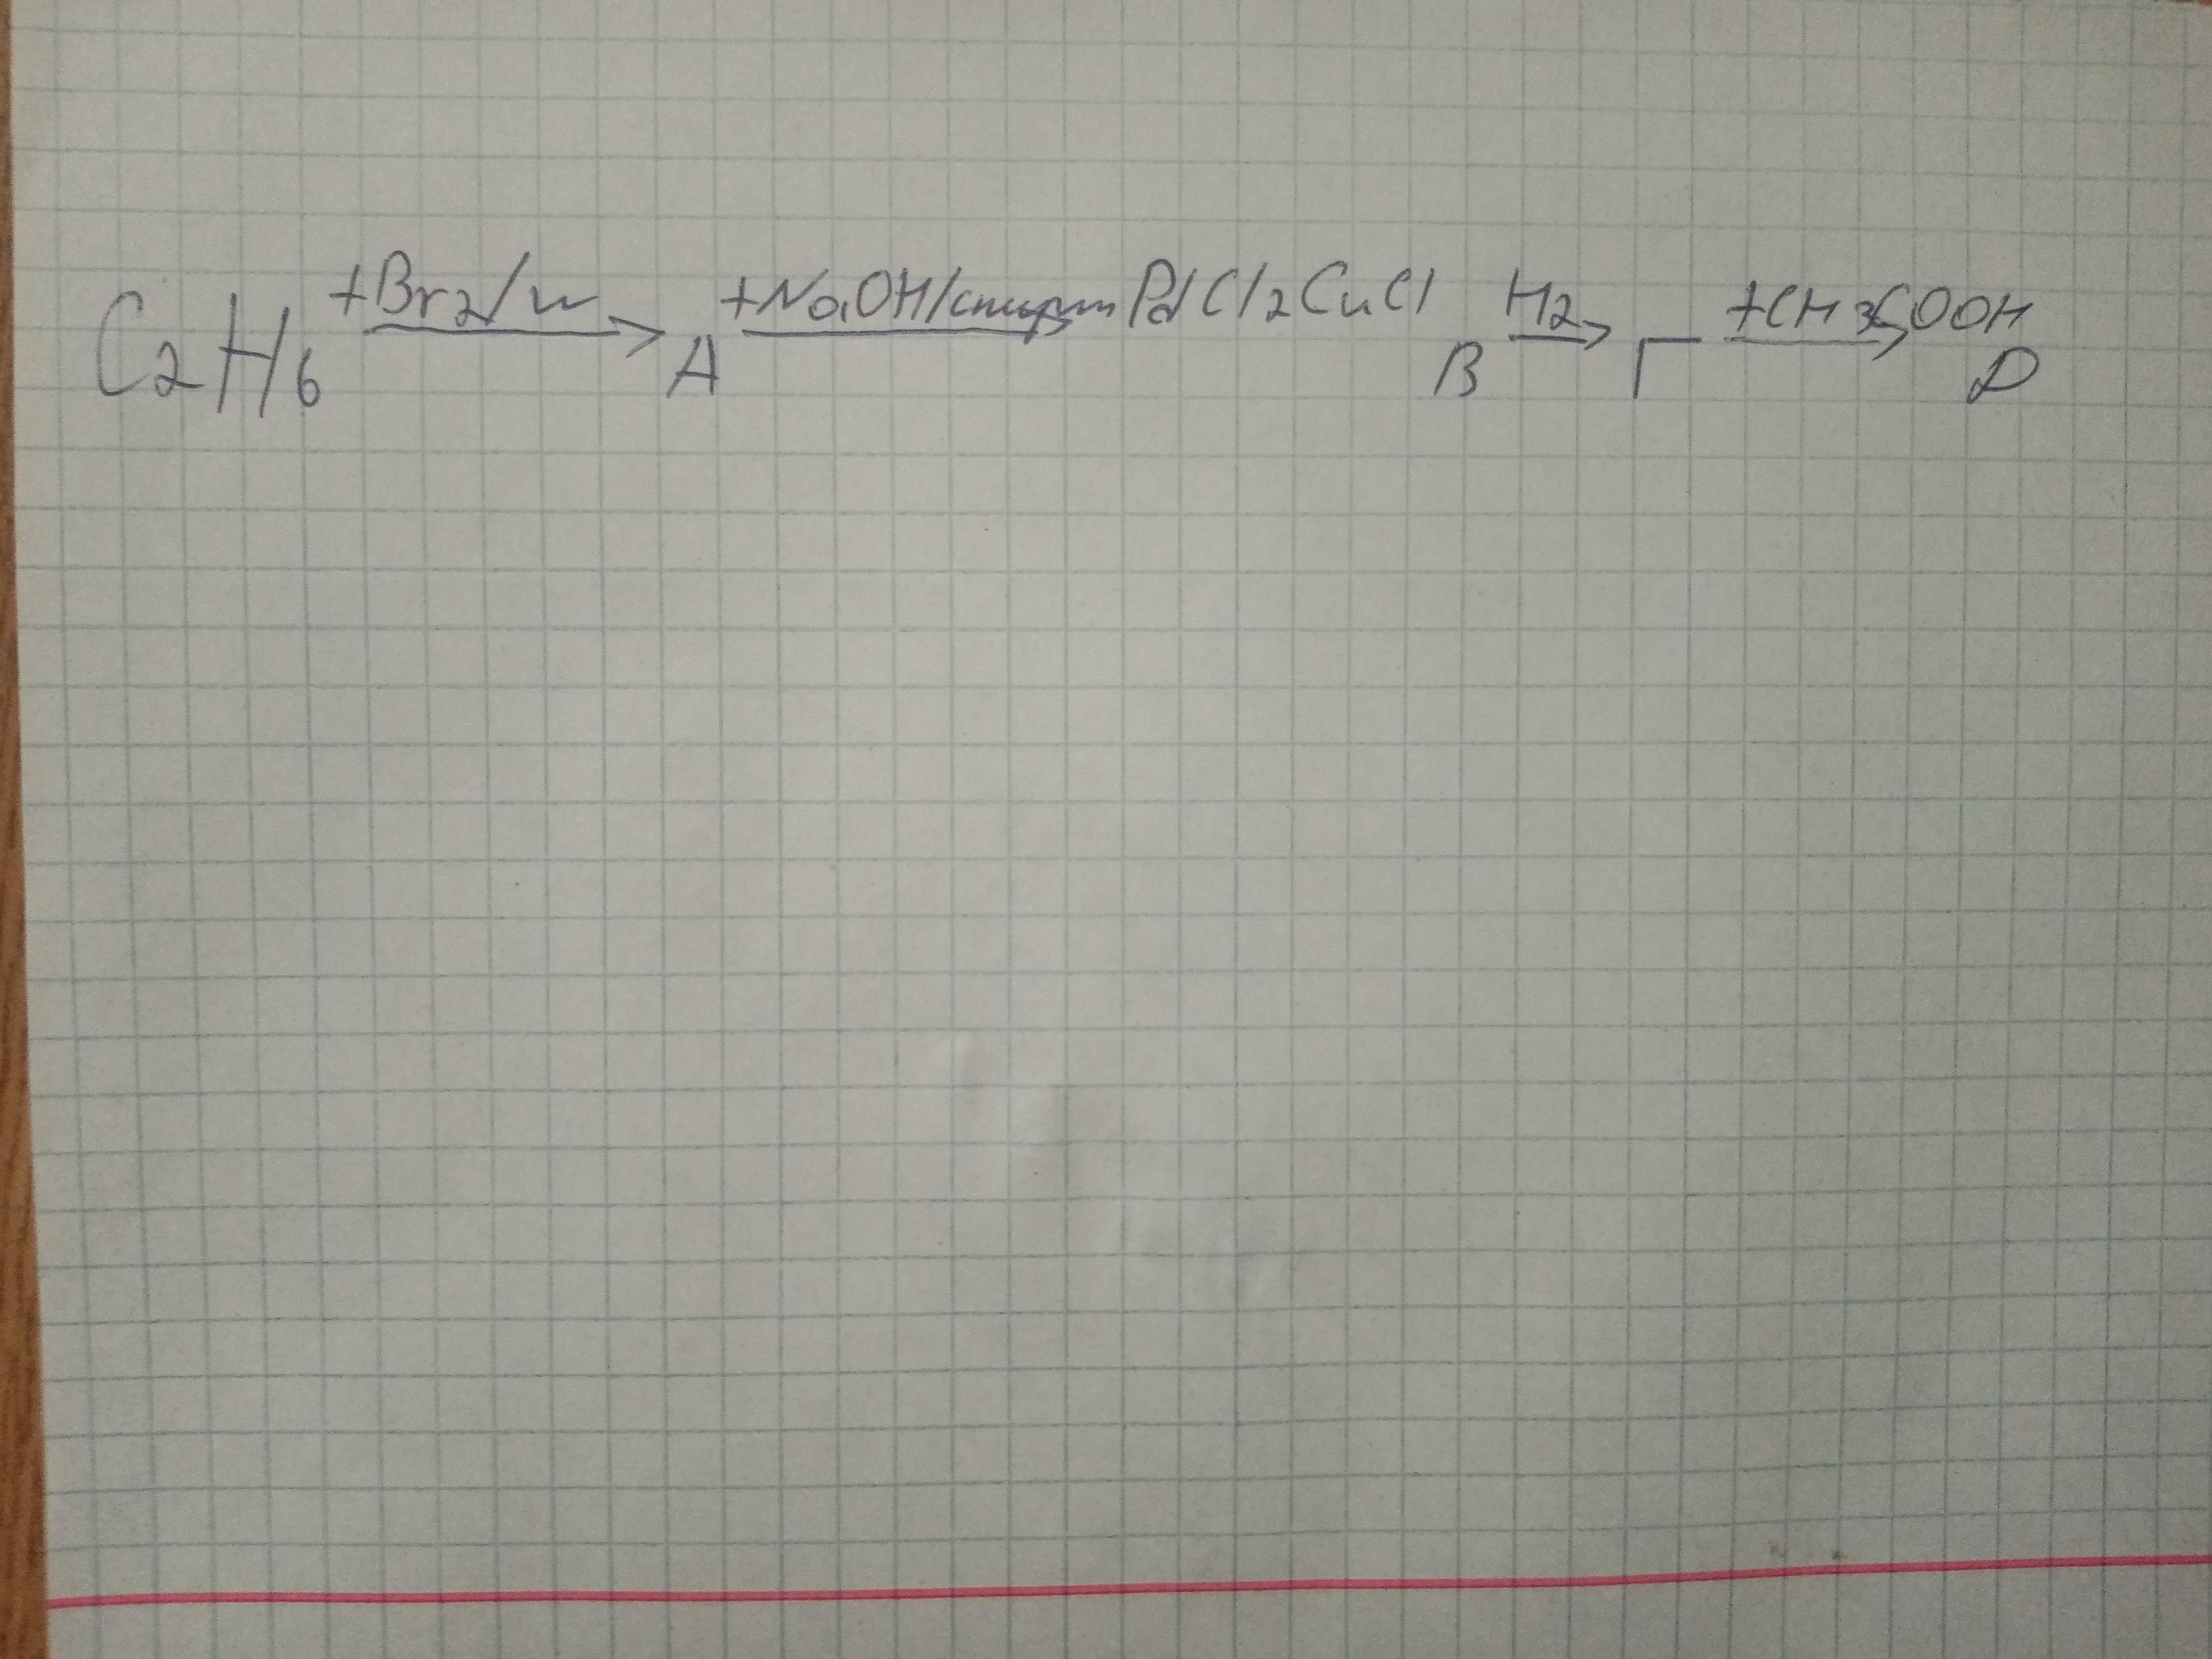 C2H6 +Br2/hν → A +NaOH/спирт → PdCl2CuCl B H2 → Г +CH3COOH → D